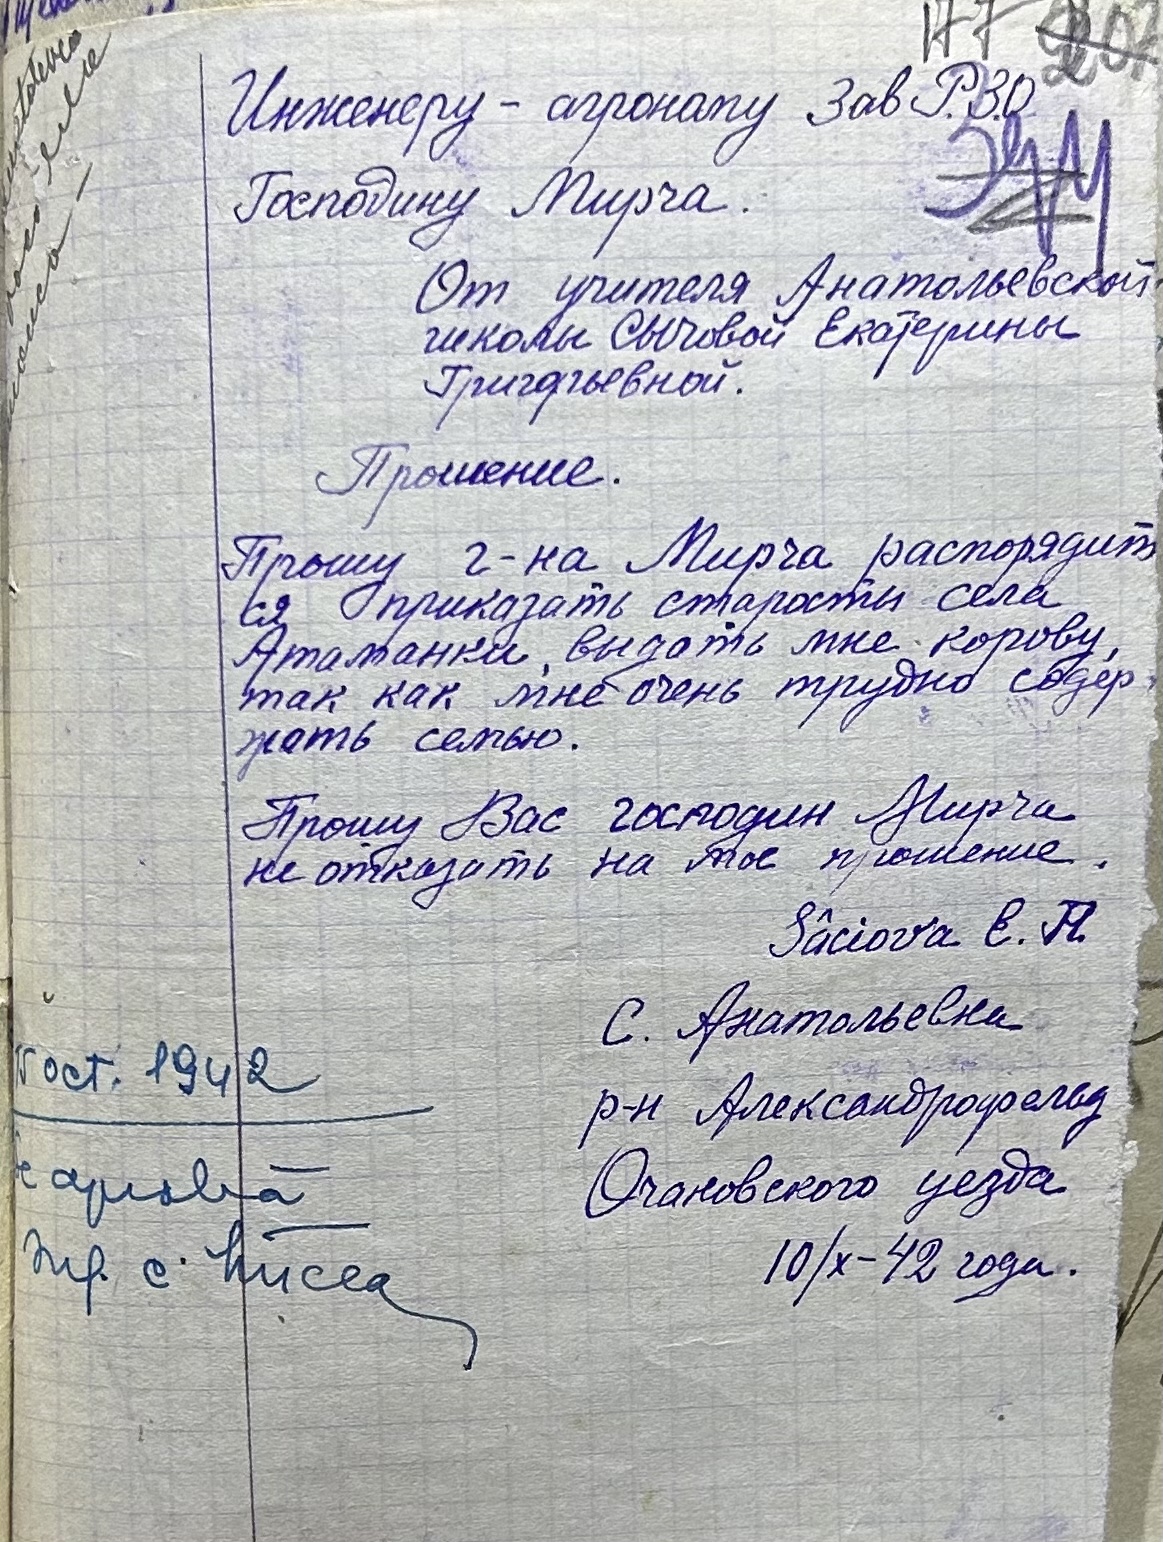 177
Инженеру - агроному Зав Р.З.О
Господину Мирча.
От учителя Анатольевской
школы Сычовой Екатерины
Григорьевной.
Прошение.
Прошу г-на Мирча распорядит
ся приказать старосты села
Атаманки, выдать мне корову,
так как мне очень трудно содер-
жать семью.
Прошу Вас господин Мирча
не отказать на мое прошение.
Sâciova Е. Г.
С. Анатольевка
р-н Александрофельд
Очановского уезда
10/х-42 года.
oct. 1942